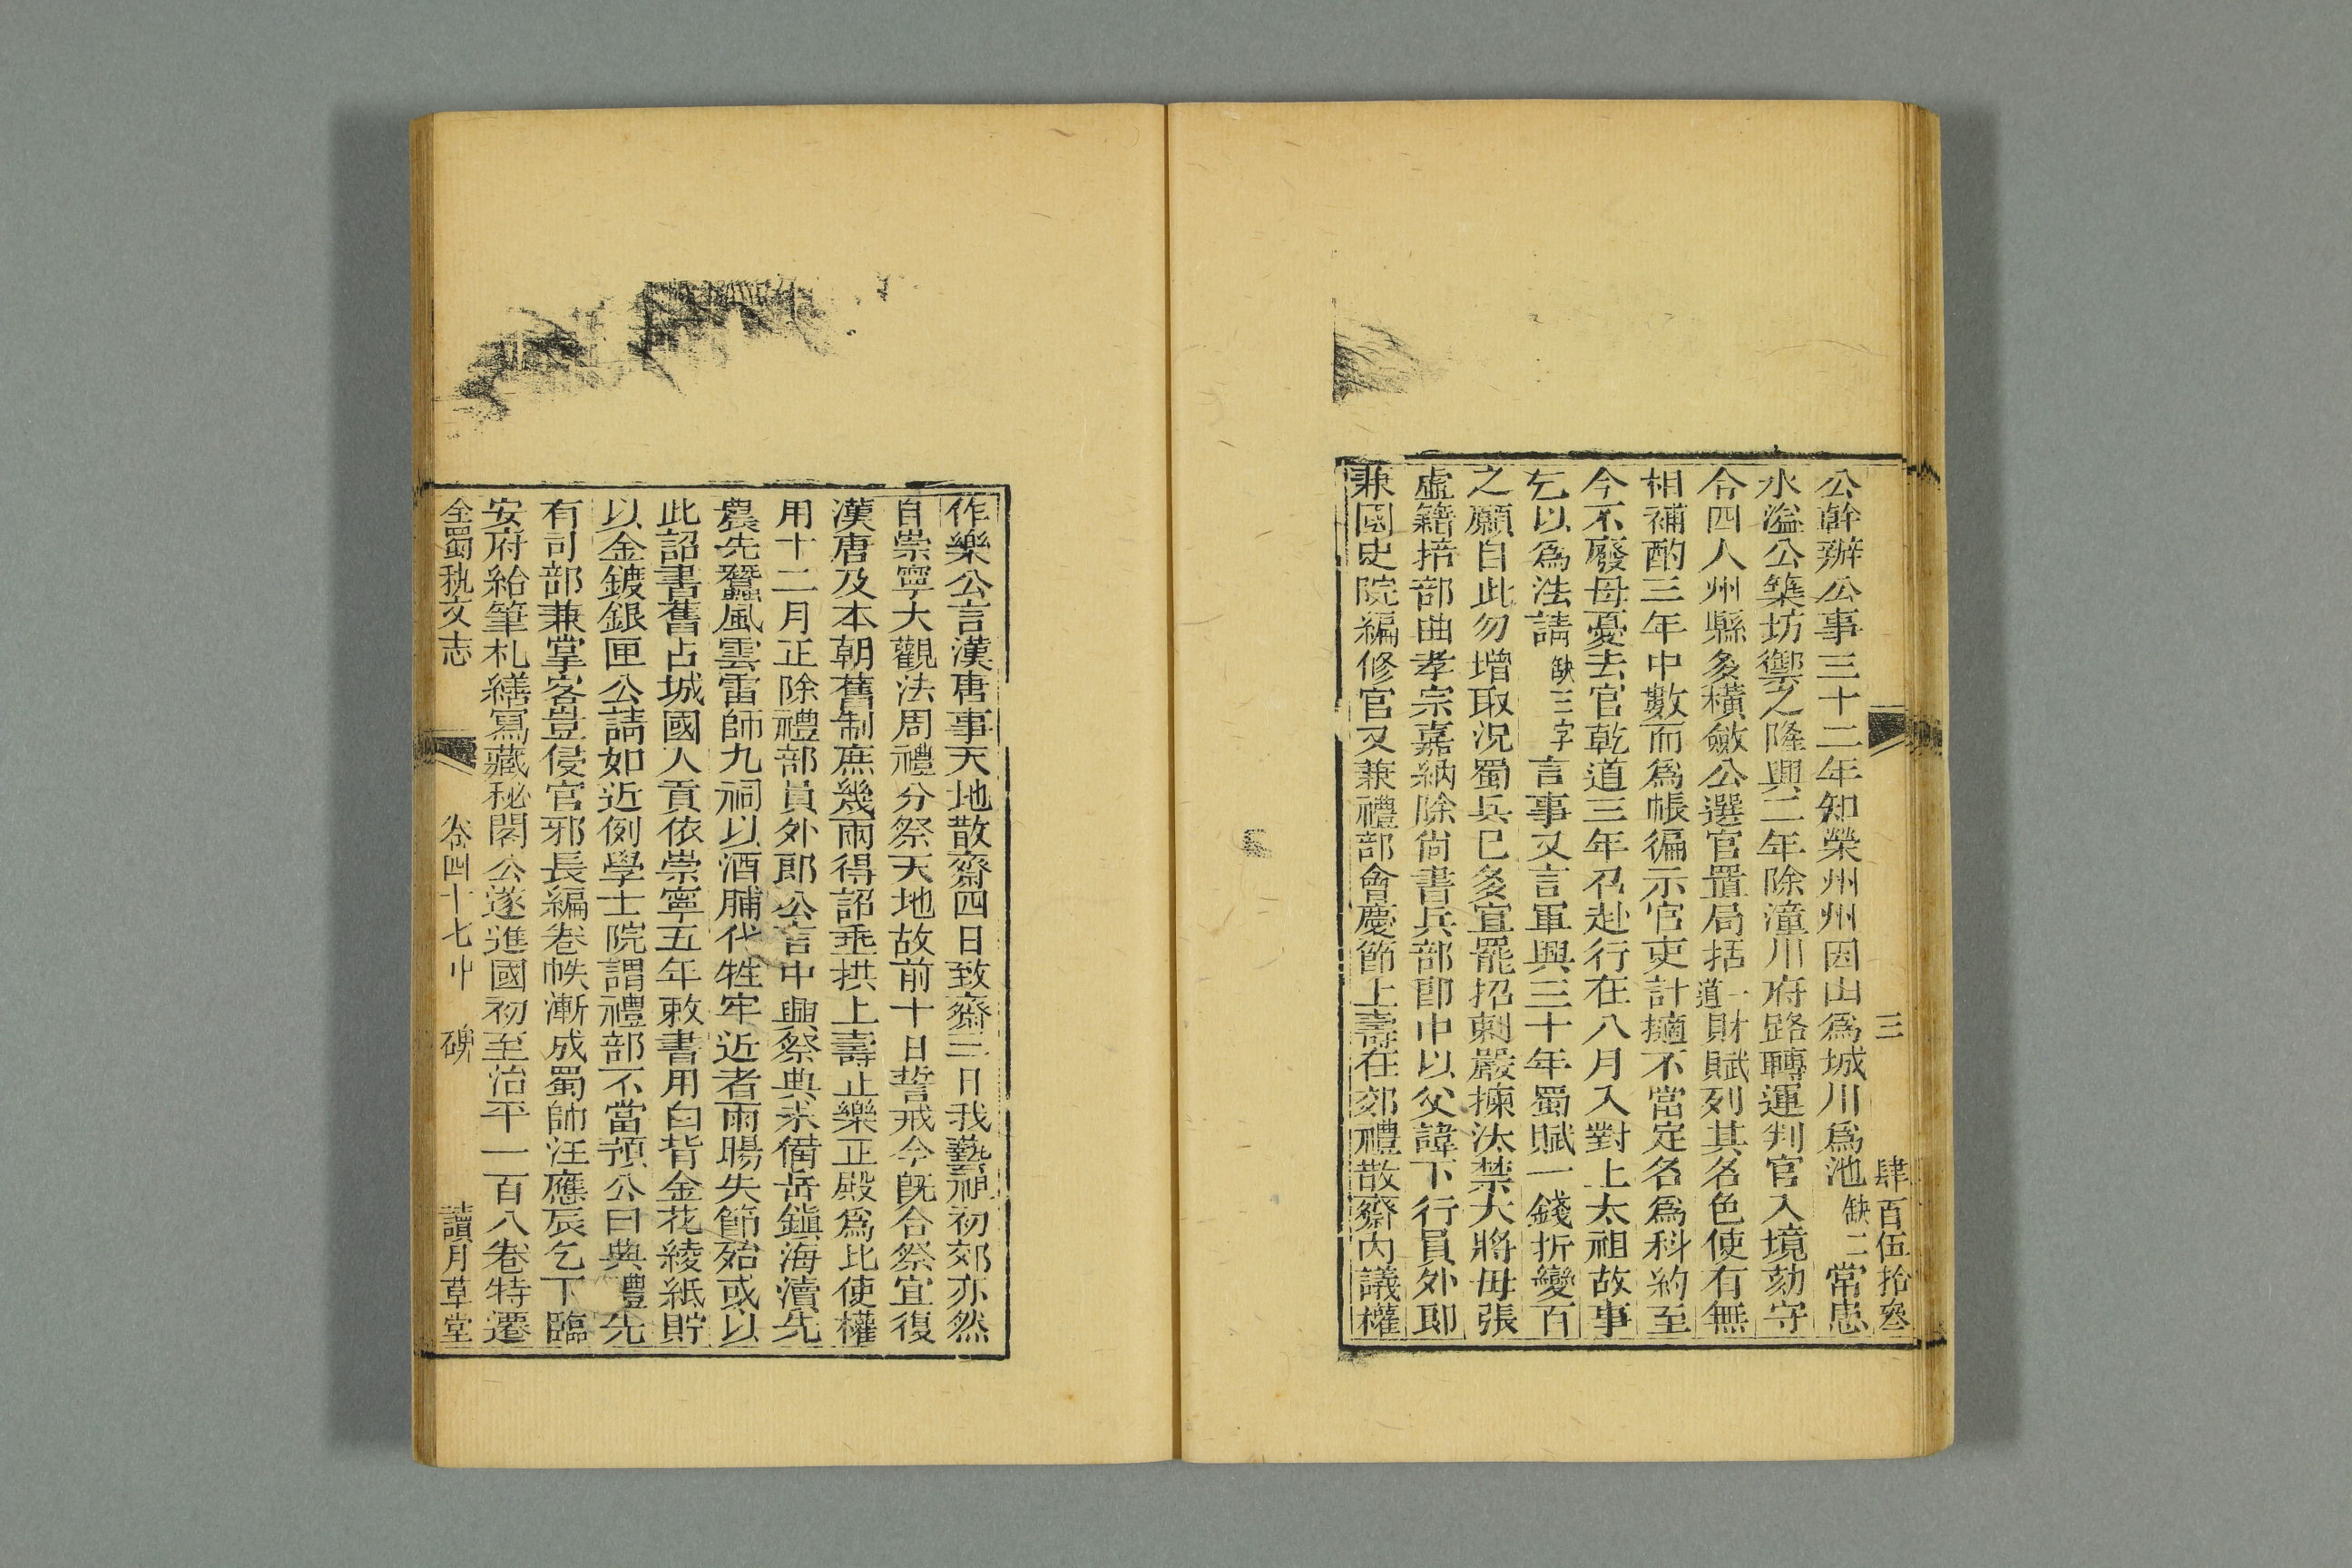 三　肆百伍拾叄
公幹辦公事三十二年知榮州州因山爲城川爲池缺二常患
水溢公築坊禦之隆興二年除潼川府路轉運判官入境劾守
令四人州縣多橫斂公選官置局括一道財賦列其名色使有無
相補酌三年中數而爲帳徧示官吏計擿不當定名爲科約至
今不廢母憂去官乾道三年召赴行在八月入對上太祖故事
乞以爲法請缺三字言事又言軍興三十年蜀賦一錢折變百
之願自此勿增取況蜀兵已多宜罷招刺嚴揀汰禁大將毋張
虛籍掊部曲孝宗嘉納除尙書兵部郎中以父諱下行員外郎
兼國史院編修官又兼禮部會慶節上壽在郊禮散齋內議權
作樂公言漢唐事天地散齋四日致齋三日我藝祖初郊亦然
自崇寧大觀法周禮分祭天地故前十日誓戒今旣合祭宜復
漢唐及本朝舊制庶幾兩得詔垂拱上壽止樂正殿爲北使權
用十二月正除禮部員外郎公言中興祭典未備岳鎭海瀆先
農先蠶風雲雷師九祠以酒脯代牲牢近者雨暘失節殆或以
此詔書舊占城國人貢依崇寧五年敕書用白背金花綾紙貯
以金鍍銀匣公請如近例學士院謂禮部不當預公曰典禮先
有司部兼掌客豈侵官邪長編卷帙漸成蜀帥汪應辰乞下臨
安府給筆札繕寫藏秘閣公遂進國初至治平一百八卷特遷
全蜀秇文志　卷四十七中　碑　讀月草堂